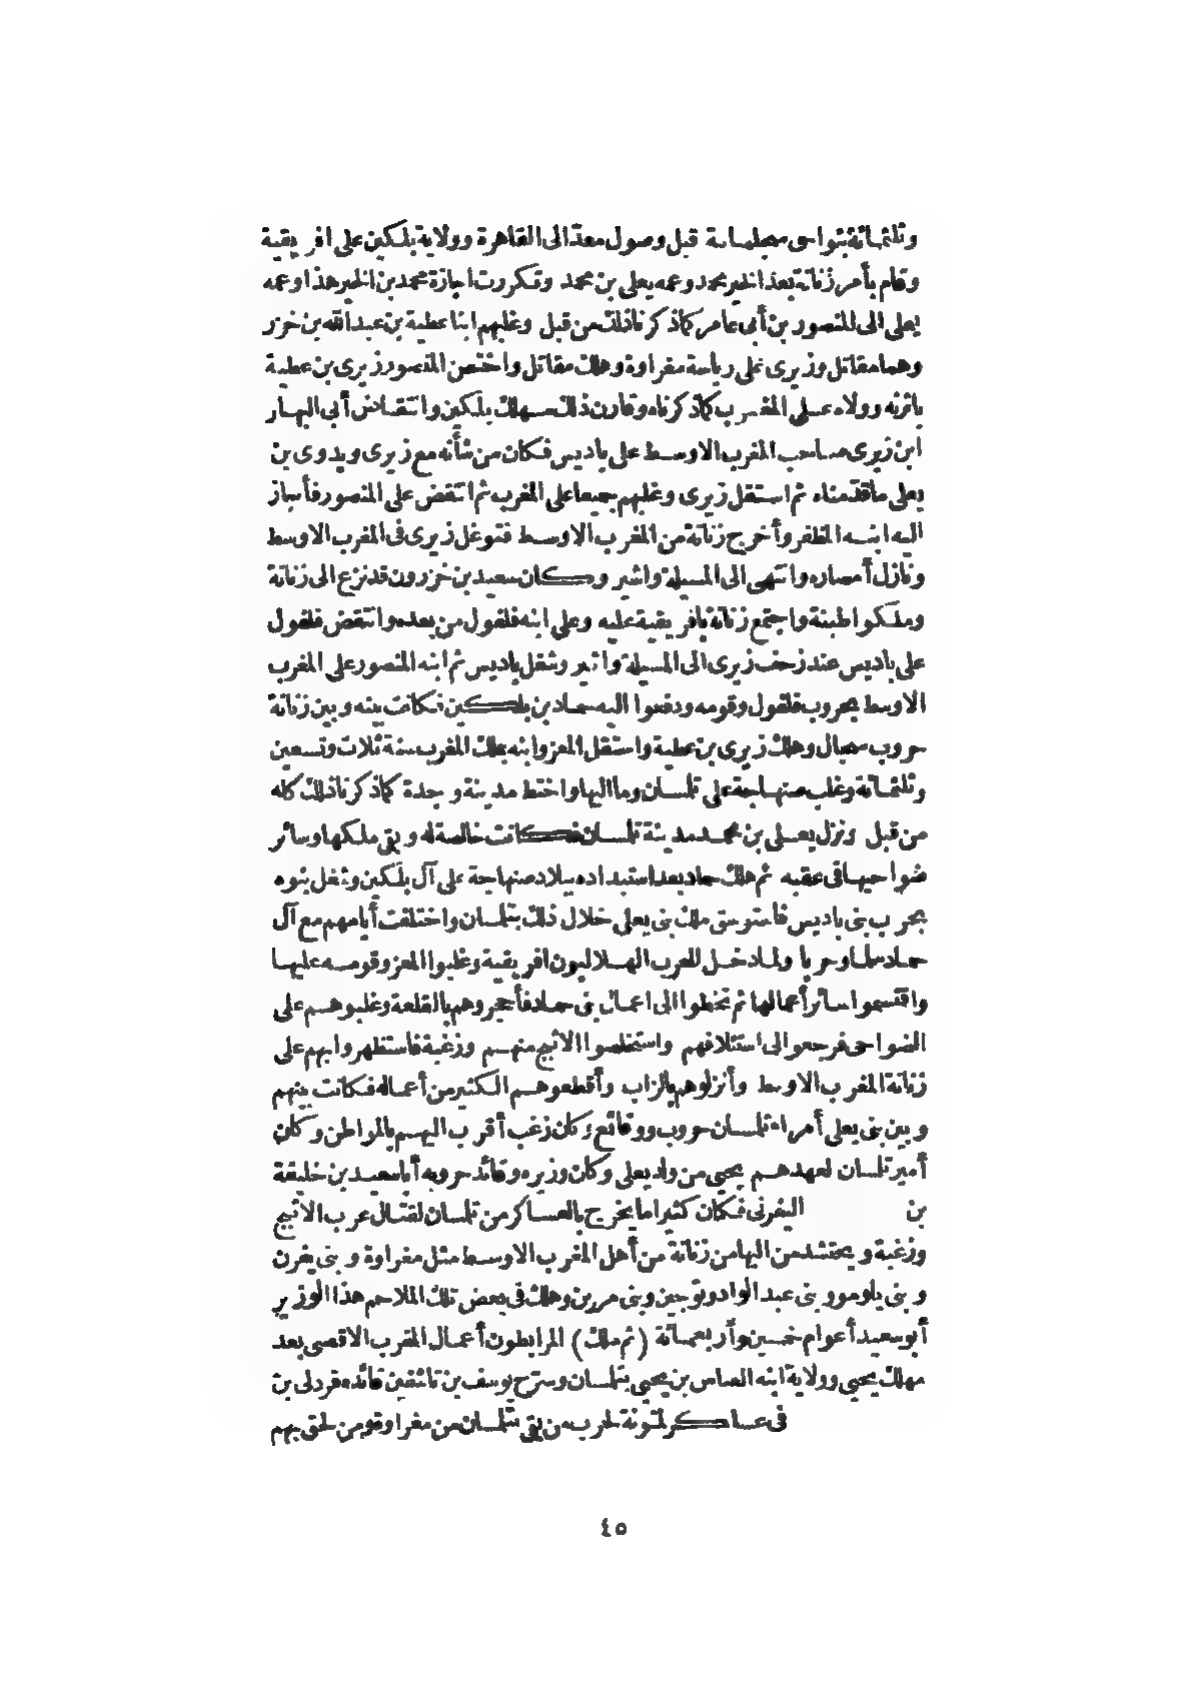 وثلثمائة بنواحى سجلماسة قبل وصول معدّ الى القاهرة وولاية بلكين على افريقية
وقام بأمر زناتة بعد الخير محمد وعمه يعلى بن محمد وتكررت اجازة محمد بن الخير هذا وعمه
يعلى الى المنصور بن أبى عامر كماذكرنا ذلك من قبل وغلبهم ابنا عطية بن عبد الله بن خزر
وهما مقاتل وزيرى على رياسة مغراوة وهلك مقاتل واختص المنصور زيرى بن عطية
باثرته وولاه على المغرب كماذكرناه وقارن ذلك مهلك بلكين وانتقاض أبى البهار
ابن زيرى صاحب المغرب الاوسط على باديس فكان من شأنه مع زيرى ويدوى بن
يعلى ماقدّمناه ثم استقل زيرى وغلبهم جميعا على المغرب ثم انتقض على المنصور فأجاز
اليه ابنه المظفر وأخرج زناتة من المغرب الاوسط فتوغل زيرى فى المغرب الاوسط
ونازل أمصاره وانتهى الى المسيلة واشير وكان سعيد بن خزرون قد نزع الى زناتة
وملكوا طبنة واجتمع زناتة بافريقية عليه وعلى ابنه فلفول من بعده وانتقض فلفول
على باديس عند زحف زيرى الى المسيلة واشير وشغل باديس ثم ابنه المنصور على المغرب
الاوسط بحروب فلفول وقومه ودفعوا اليه حماد بن بلكين فكانت بينه وبين زناتة
حروب سجال وهلك زيرى بن عطية واستقل المعز وابنه بملك المغرب سنة ثلاث وتسعين
وثلثمائة وغلب صنهاجة على تلمسان وما اليها واختط مدينة وجدة كماذكرنا ذلك كله
من قبل ونزل يعلى بن محمد مدينة تلمسان فكانت خالصة له وبقى ملكها وسائر
ضواحيها فى عقبه ثم هلك حماد بعد استبداده ببلاد صنهاجة على آل بلكين وشغل بنوه
بحرب بنى باديس فاستوسق ملك بنى يعلى خلال ذلك بتلمسان واختلفت أيامهم مع آل
حماد سلما وحربا ولما دخل العرب الهلاليون افريقية وغلبوا المعز وقومه عليها
واقتسموا سائر أعمالها ثم تخطوا الى اعمال بنى حماد فأحجروهم بالقلعة وغلبوهم على
الضواحى فرجعوا الى استئلافهم واستخلصوا الاثبج منهم وزغبة فاستظهروا بهم على
زناتة المغرب الاوسط وأنزلوهم بالزاب وأقطعوهم الكثير من أعماله فكانت بينهم
وبين بنى يعلى أمراء تلمسان حروب ووقائع وكان زغب أقرب اليهم بالمواطن وكان
أمير تلمسان لعهدهم يحيى من ولد يعلى وكان وزيره وقائد حروبه أباسعيد بن خليفة
بن اليفرنى فكان كثيرا ما يخرج بالعساكر من تلمسان لقتال عرب الاثبج
وزغبة ويحتشد من اليها من زناتة من أهل المغرب الاوسط مثل مغراوة وبنى يفرن
وبنى يلومو وبنى عبد الواد وتوجين وبنى مرين وهلك فى بعض تلك الملاحم هذا الوزير
أبو سعيد أعوام خمسين وأربعمائة (ثم ملك) المرابطون أعمال المغرب الاقصى بعد
مهلك يحيى وولاية ابنه العباس بن يحيى بتلمسان وسرح يوسف بن تاشفين قائده مزدلى بن
فى عساكر لمتونة لحرب من بقى بتلمسان من مغراوة ومن لحق بهم
٤٥